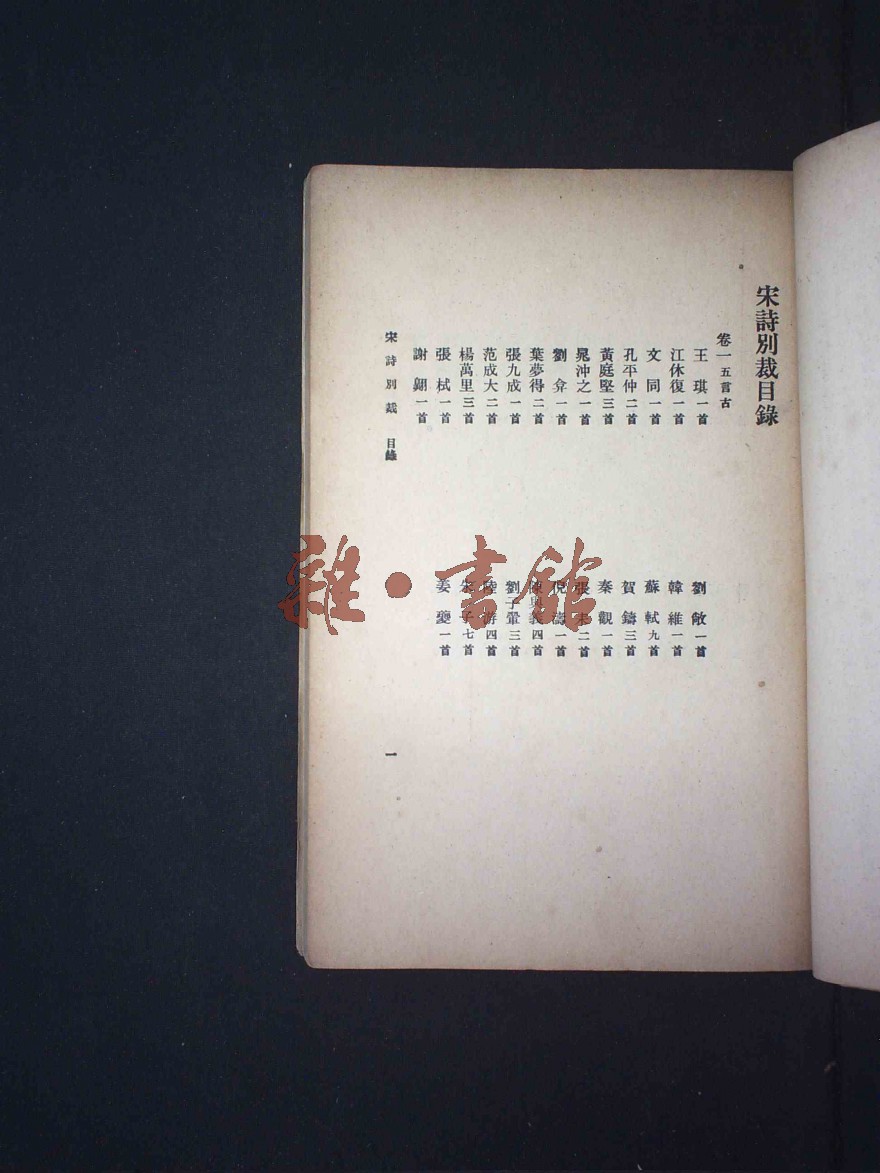 宋詩別裁目錄
卷一 五言古
王琪一首
劉敞一首
江休復一首
韓維一首
文同一首
蘇軾九首
孔平仲二首
賀鑄三首
黃庭堅三首
秦觀一首
晁沖之一首
張耒二首
劉弇一首
倪濤一首
葉夢得二首
陳與義四首
張九成一首
劉子翬三首
范成大二首
陸游四首
楊萬里三首
朱子七首
張栻一首
姜夔一首
謝翱一首
宋詩別裁 目錄
一
雜·書館